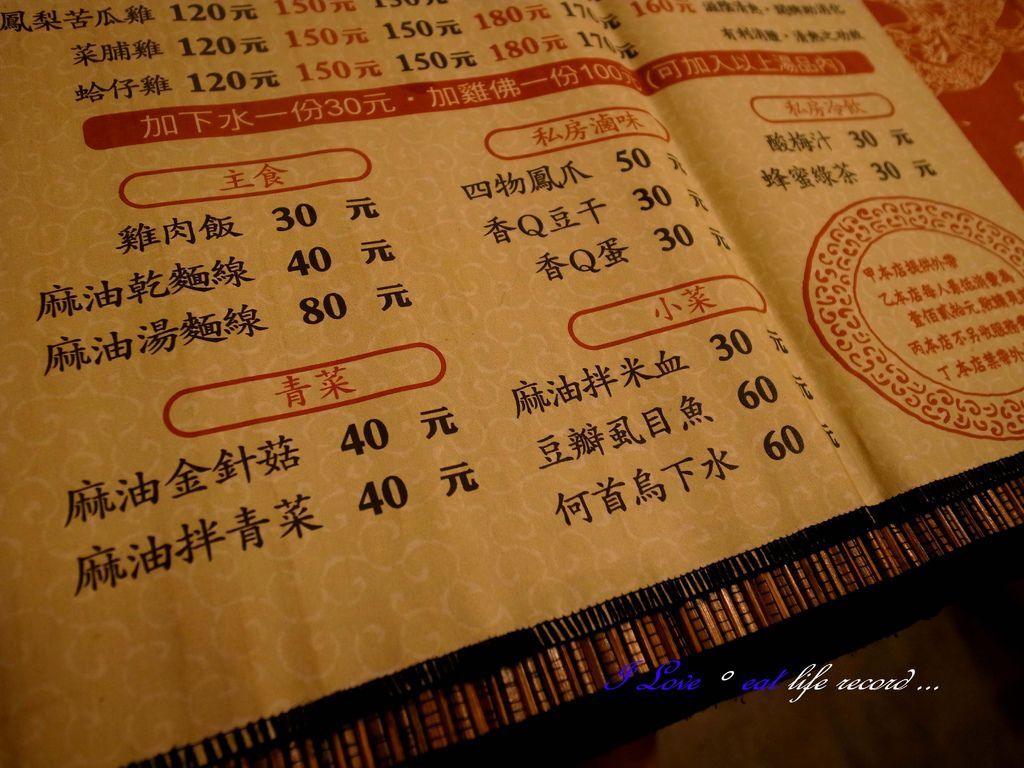 鳳梨苦瓜雞 120元 150元 150元 180元 170元 160元
菜脯雞 120元 150元 150元 180元 170元
有利消腫‧清熱之功效
蛤仔雞 120元 150元 150元 180元 170元
加下水一份30元‧加雞佛一份100元(可加入以上湯品內)
主食
雞肉飯 30 元
麻油乾麵線 40 元
麻油湯麵線 80 元
青菜
麻油金針菇 40 元
麻油拌青菜 40 元
私房滷味
四物鳳爪 50 元
香Q豆干 30 元
香Q蛋 30 元
小菜
麻油拌米血 30 元
豆瓣虱目魚 60 元
何首烏下水 60 元
私房冷飲
酸梅汁 30 元
蜂蜜綠茶 30 元
甲本店提供外帶
乙本店每人最低消費為
壹佰貳拾元
丙本店不另收服務
丁本店禁帶外
I Love ° eat life record ...